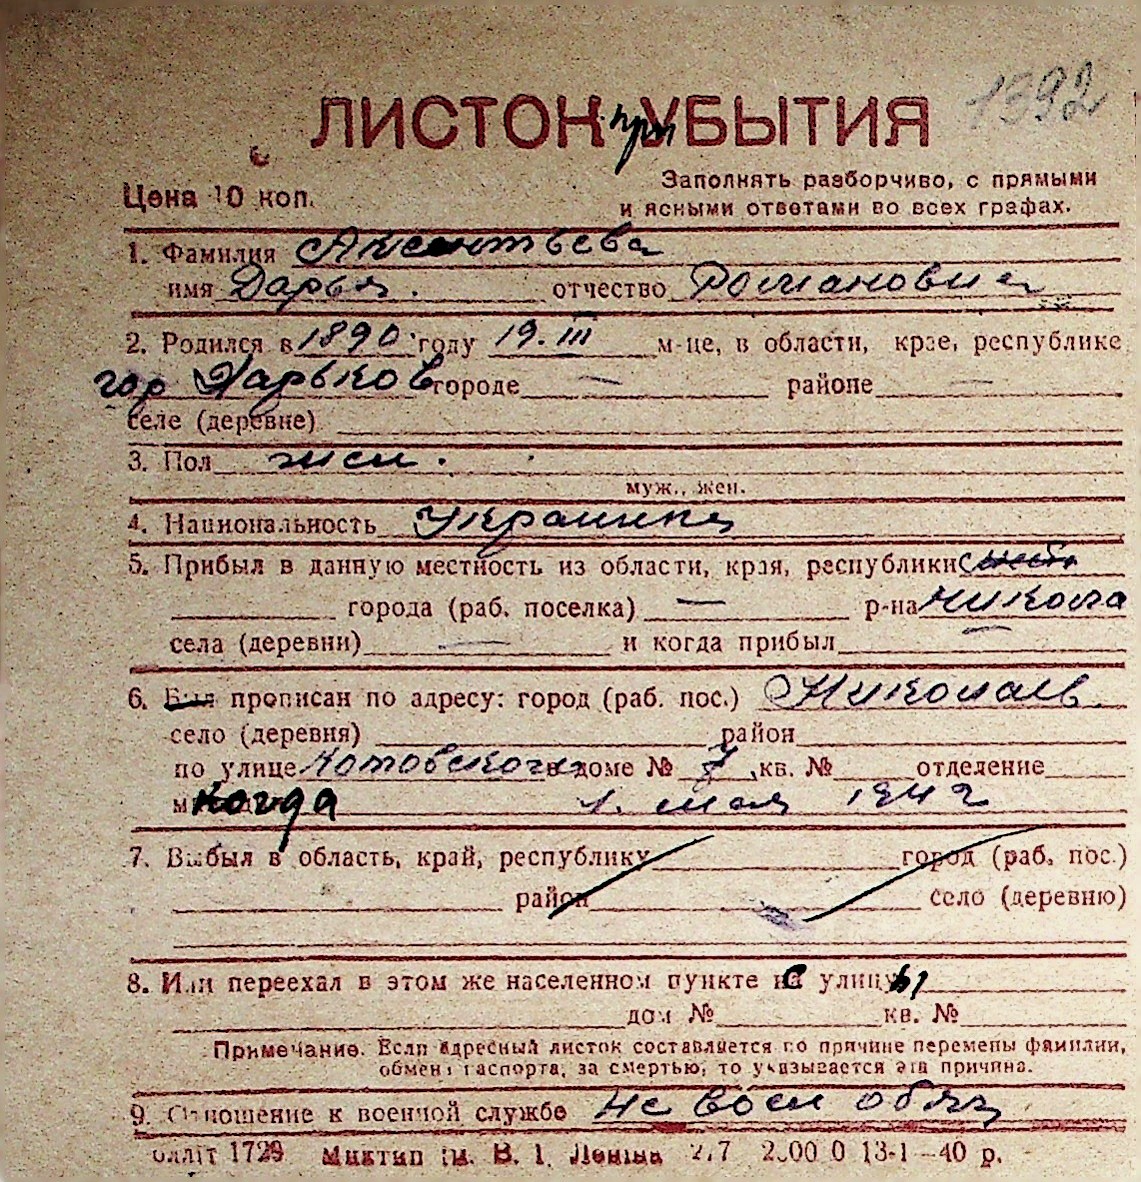 1392
ЛИСТОК при УБЫТИЯ
Цена 10 коп.
Заполнять разборчиво, с прямыми
и ясными ответами во всех графах.
1. Фамилия Аксентьева
имя Дарья. отчество Романовна
2. Родился в 1890 году 19. III м-це, в области, крае, республике
гор Харьков городе — районе —
селе (деревне)
3. Пол жен.
муж., жен.
4. Национальность Украинка
5. Прибыл в данную местность из области, края, республики
города (раб. поселка) — р-на Никола
села (деревни) — и когда прибыл —
6. Был прописан по адресу: город (раб. пос.) Николаев
село (деревня) район
по улице Котовского в доме № 7, кв. № отделение
когда 1. мая 1942
7. Выбыл в область, край, республику город (раб. пос.)
район село (деревню)
8. Или переехал в этом же населенном пункте с улицы
дом № кв. №
Примечание. Если адресный листок составляется по причине перемены фамилии,
обмена паспорта, за смертью, то указывается эта причина.
9. Отношение к военной службе не воен обяз
1729 В. І. Леніна 13-1—40 р.